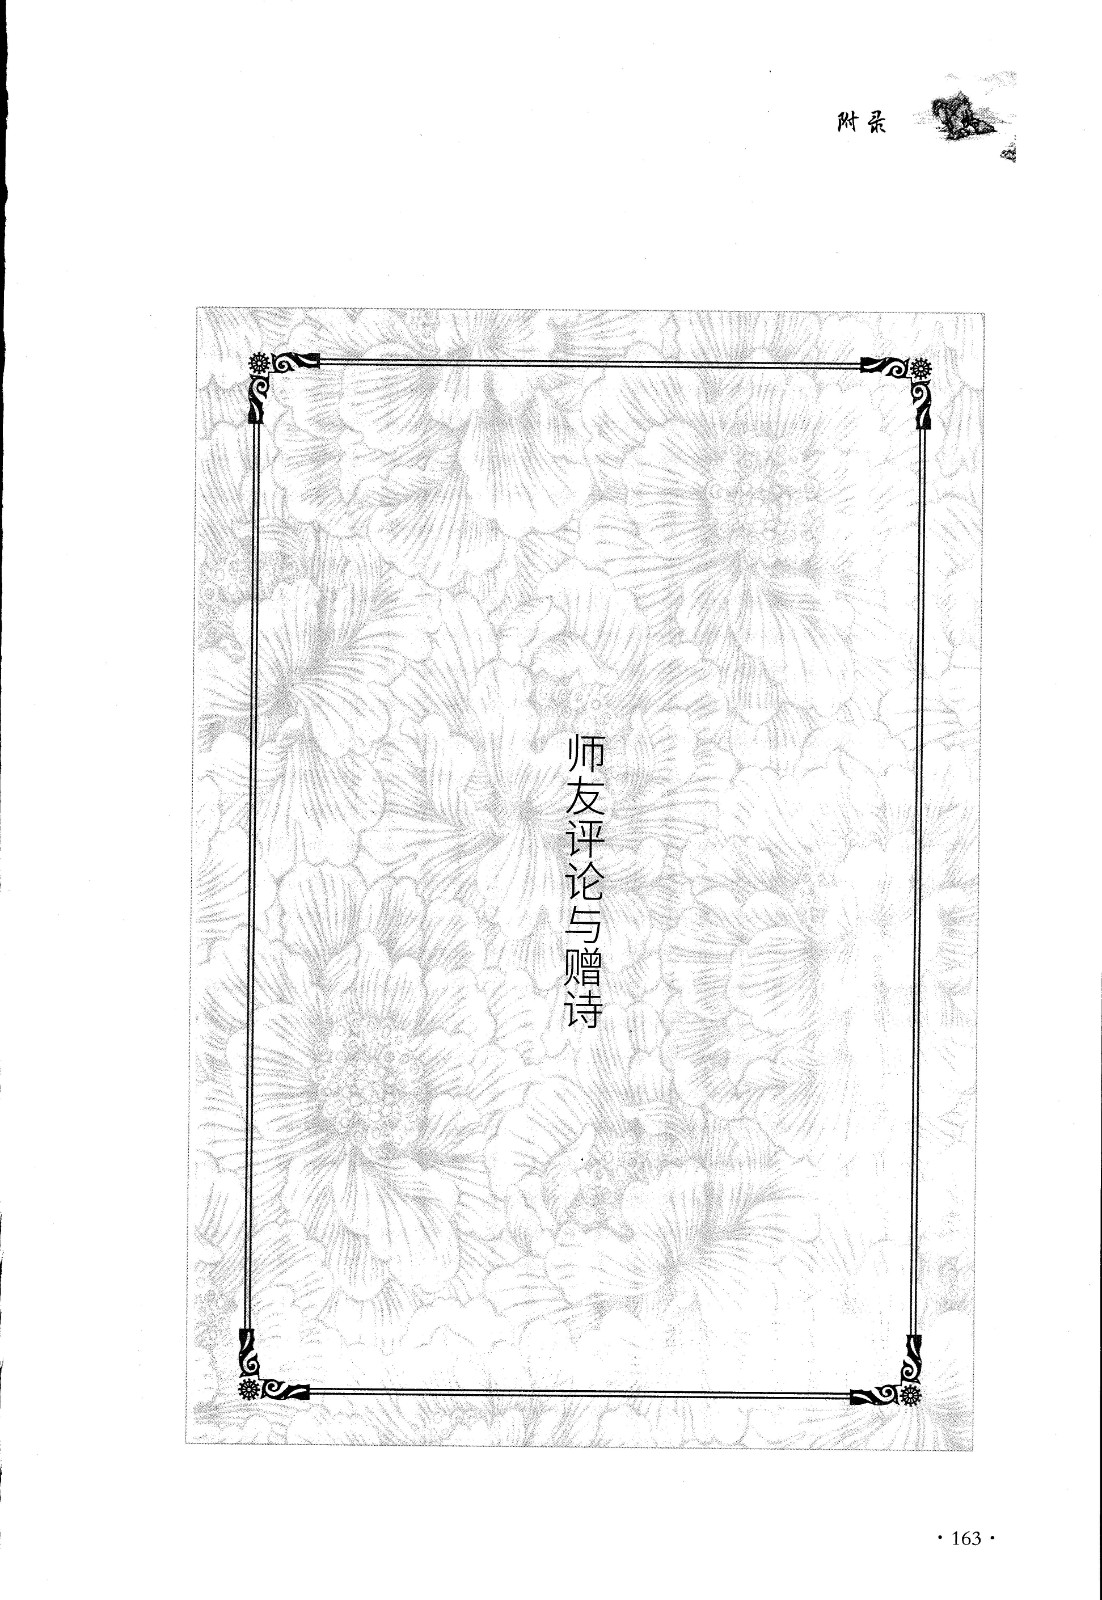 附录
师友评论与赠诗
·163·